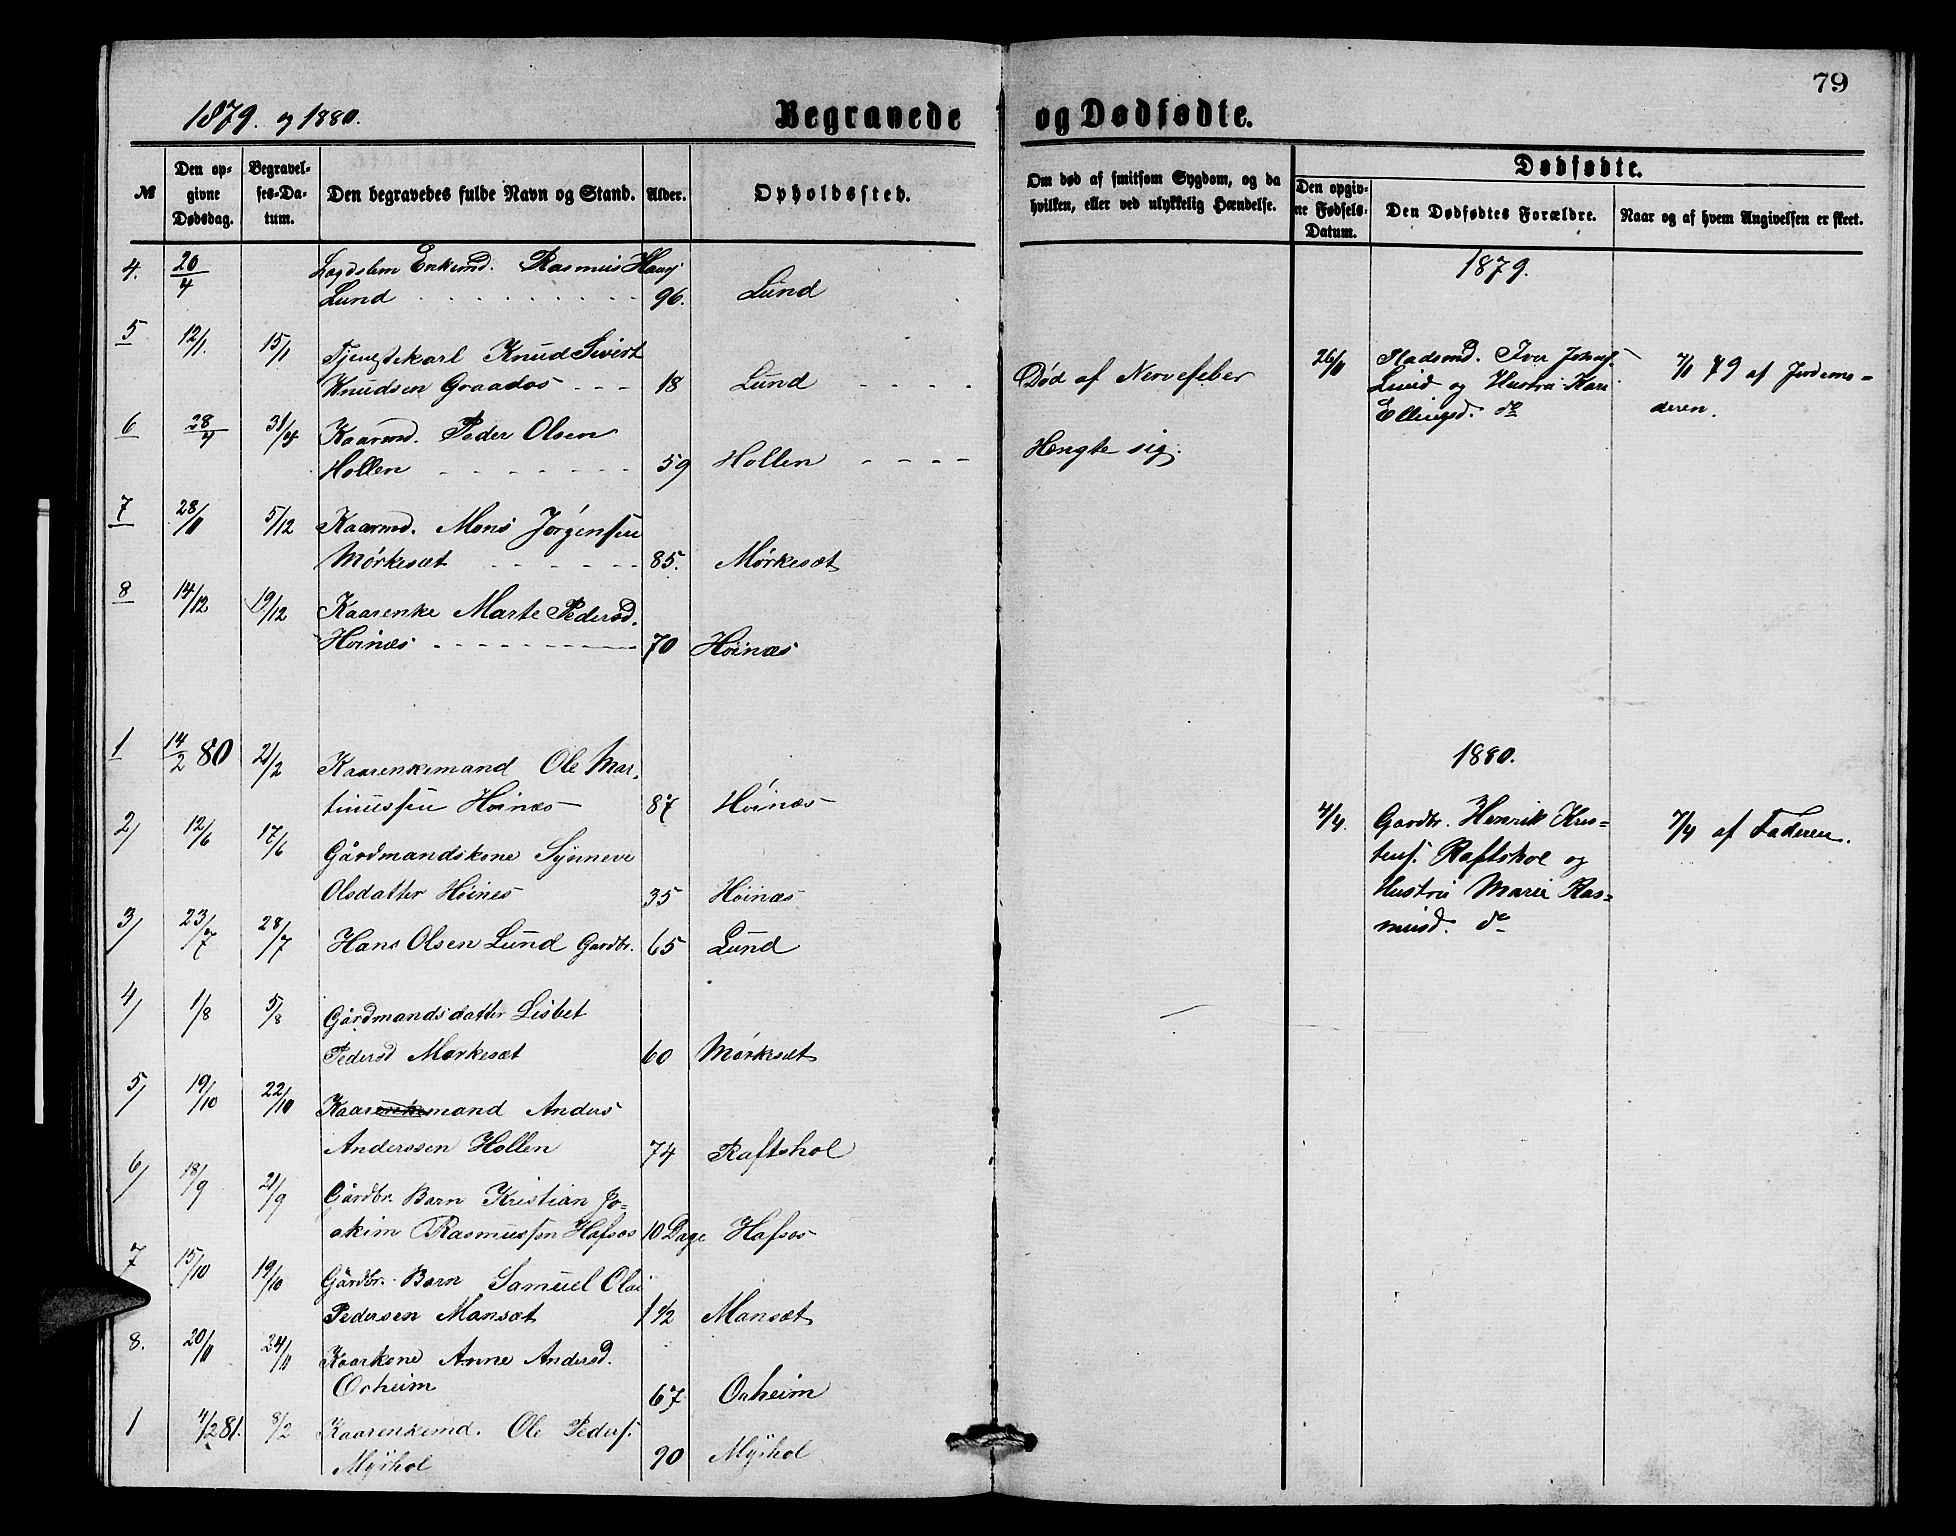 79
1879. og 1880. Begravede og Dødfødte.
№ Den opgivne Dødsdag. Begravelses-Datum. Den begravedes fulde Navn og Stand. Alder. Opholdssted. Om død af smitsom Sygdom, og da hvilken, eller ved ulykkelig Hændelse. Dødfødte.
Den opgivne Fødsels-Datum. Den Dødfødtes Forældre. Naar og af hvem Angivelsen er skeet.
4. 20/4 Enkemd. Rasmus
Lund 96. Lund
1879.
5 12/1. 15/1 Tjenestekarl Knud Sivert
Knudsen Graados 18 Lund Død af Nervefeber
26/11 Pladsmd. Iver
Lund og Hustru Kari
Ellingsd. do
79 af Jordemo-
deren.
6 28/4 31/4 Kaarmd. Peder Olsen
Hollen 59 Hollen Hengte sig.
7 28/11 5/12 Kaarmd. Mons Jørgensen
Mørkesæt 85. Mørkesæt
8 14/12 19/12 Kaarenke Marte Pedersd.
Høinæs 70 Høinæs
1 14/2 80 21/2 Kaarenkemand Ole Mar-
tinussen Høinæs 87 Høinæs
1880.
2/ 12/6 17/6 Gårdmandskone Synneve
Olsdatter Høines 35 Høinæs
4/4. Gardbr. Henrik Kris-
tens. Raftshol og
Hustru Marie Ras-
musd. do
7/4 af Faderen.
3/ 23/7 28/7 Hans Olsen Lund Gardbr. 65 Lund
4/ 1/8 5/8 Gårdmandsdatter Lisbet
Pedersd Mørkesæt 60 Mørkesæt
5/ 19/10 22/10 Kaarenkemand Anders
Anderssen Hollen 74 Raftshol
6/ 18/9 21/9 Gårdbr. Barn Kristian Jo-
akim Rasmussen Hafsos 10 Dage Hafsos
7 15/10 19/10 Gårdbr. Barn Samuel Olai
Pedersen Mansæt 1 1/2 Mansæt
8. 20/11 24/11 Kaarkone Anne Andersd.
Orheim 67 Orheim
1 4/2 81. 8/2 Kaarenkemd. Ole Peders.
Myrhol 90 Myrhol